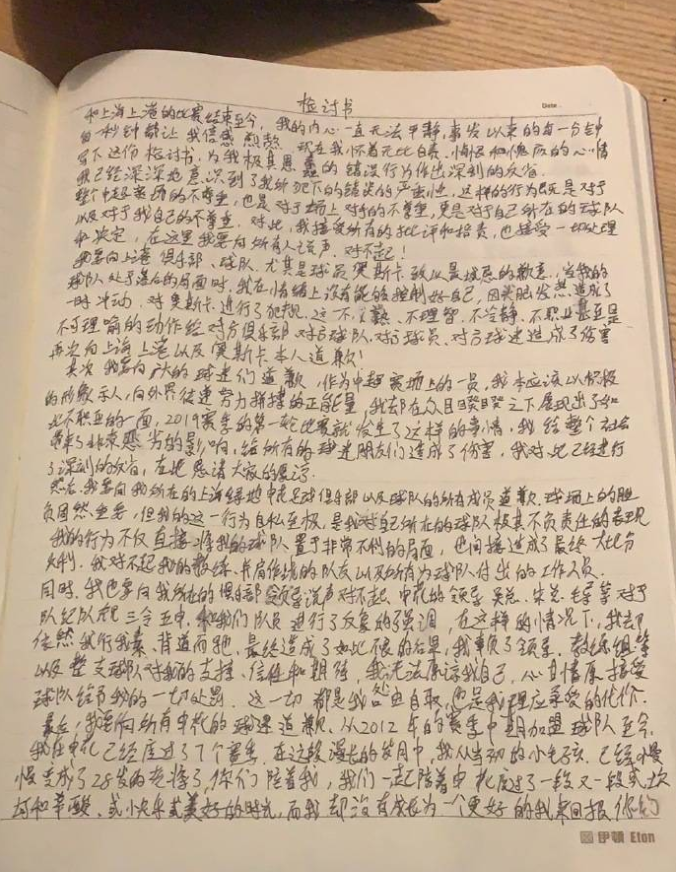 检讨书
Date.
和上海上港的比赛结束至今，我的内心一直无法平静，事发以来的每一分钟
每一秒钟都让我倍感煎熬。现在我怀着无比自责、悔恨和愧疚的心情
写下这份检讨书，为我极其愚蠢的错误行为作出深刻的反省。
我已经深深地意识到了我所犯下的错误的严重性，这样的行为既是对于
整个中超赛场的不尊重，也是对于场上对手的不尊重，更是对于自己所在的球队
以及对于我自己的不尊重。对此，我接受所有的批评和指责，也接受一切处理
和决定，在这里我要向所有人说声，对不起！
我要向上港俱乐部、球队、尤其是球员奥斯卡致以最诚恳的歉意，当我的
球队处于落后的局面时，我在情绪上没有能够控制好自己，因头脑发热造成了
一时冲动，对奥斯卡进行了犯规，这一不成熟、不理智、不冷静、不职业甚至是
不可理喻的动作给对方俱乐部、对方球队、对方球员、对方球迷造成了伤害
再次向上海上港以及奥斯卡本人道歉！
其次，我要向广大的球迷们道歉，作为中超赛场上的一员，我本应该以积极
的形象示人，向外界传递努力拼搏的正能量，我却在众目睽睽之下展现出了如
此不职业的一面，2019赛季的第一轮比赛就发生了这样的事情，我给整个社会
带来了非常恶劣的影响，给所有的球迷朋友们造成了伤害，我对此已经进行
了深刻的反省，在此恳请大家的原谅。
然后，我要向我所在的上海绿地申花足球俱乐部以及球队的所有成员道歉，球场上的胜
负固然重要，但我的这一行为自私至极，是我对自己所在的球队极其不负责任的表现
我的行为不仅直接将我的球队置于非常不利的局面，也间接造成了最终大比分
失利。我对不起我的教练、并肩作战的队友以及所有为球队付出的工作人员。
同时，我也要向我所在的俱乐部领导说声对不起，申花的领导吴总、宋总、毛导等对于
队纪队规三令五申，和我们队员进行了反复的强调，在这样的情况下，我却
依然我行我素、背道而驰，最终造成了如此不良的后果，我辜负了领导、教练组等
以及整支球队对我的支持、信任和期望，我无法原谅我自己，心甘情愿接受
球队给予我的一切处罚，这一切都是我咎由自取，也是我理应承受的代价。
最后，我要向所有申花的球迷道歉，从2012年的赛季中期加盟球队至今，
我在申花已经度过了7个赛季，在这段漫长的岁月中，我从当初的小毛孩，已经慢
慢变成了28岁的老将了，你们陪着我，我们一起陪着申花度过了一段又一段或坎
坷和辛酸、或快乐或美好的时光，而我却没有成长为一个更好的我来回报你们
伊顿 Eton